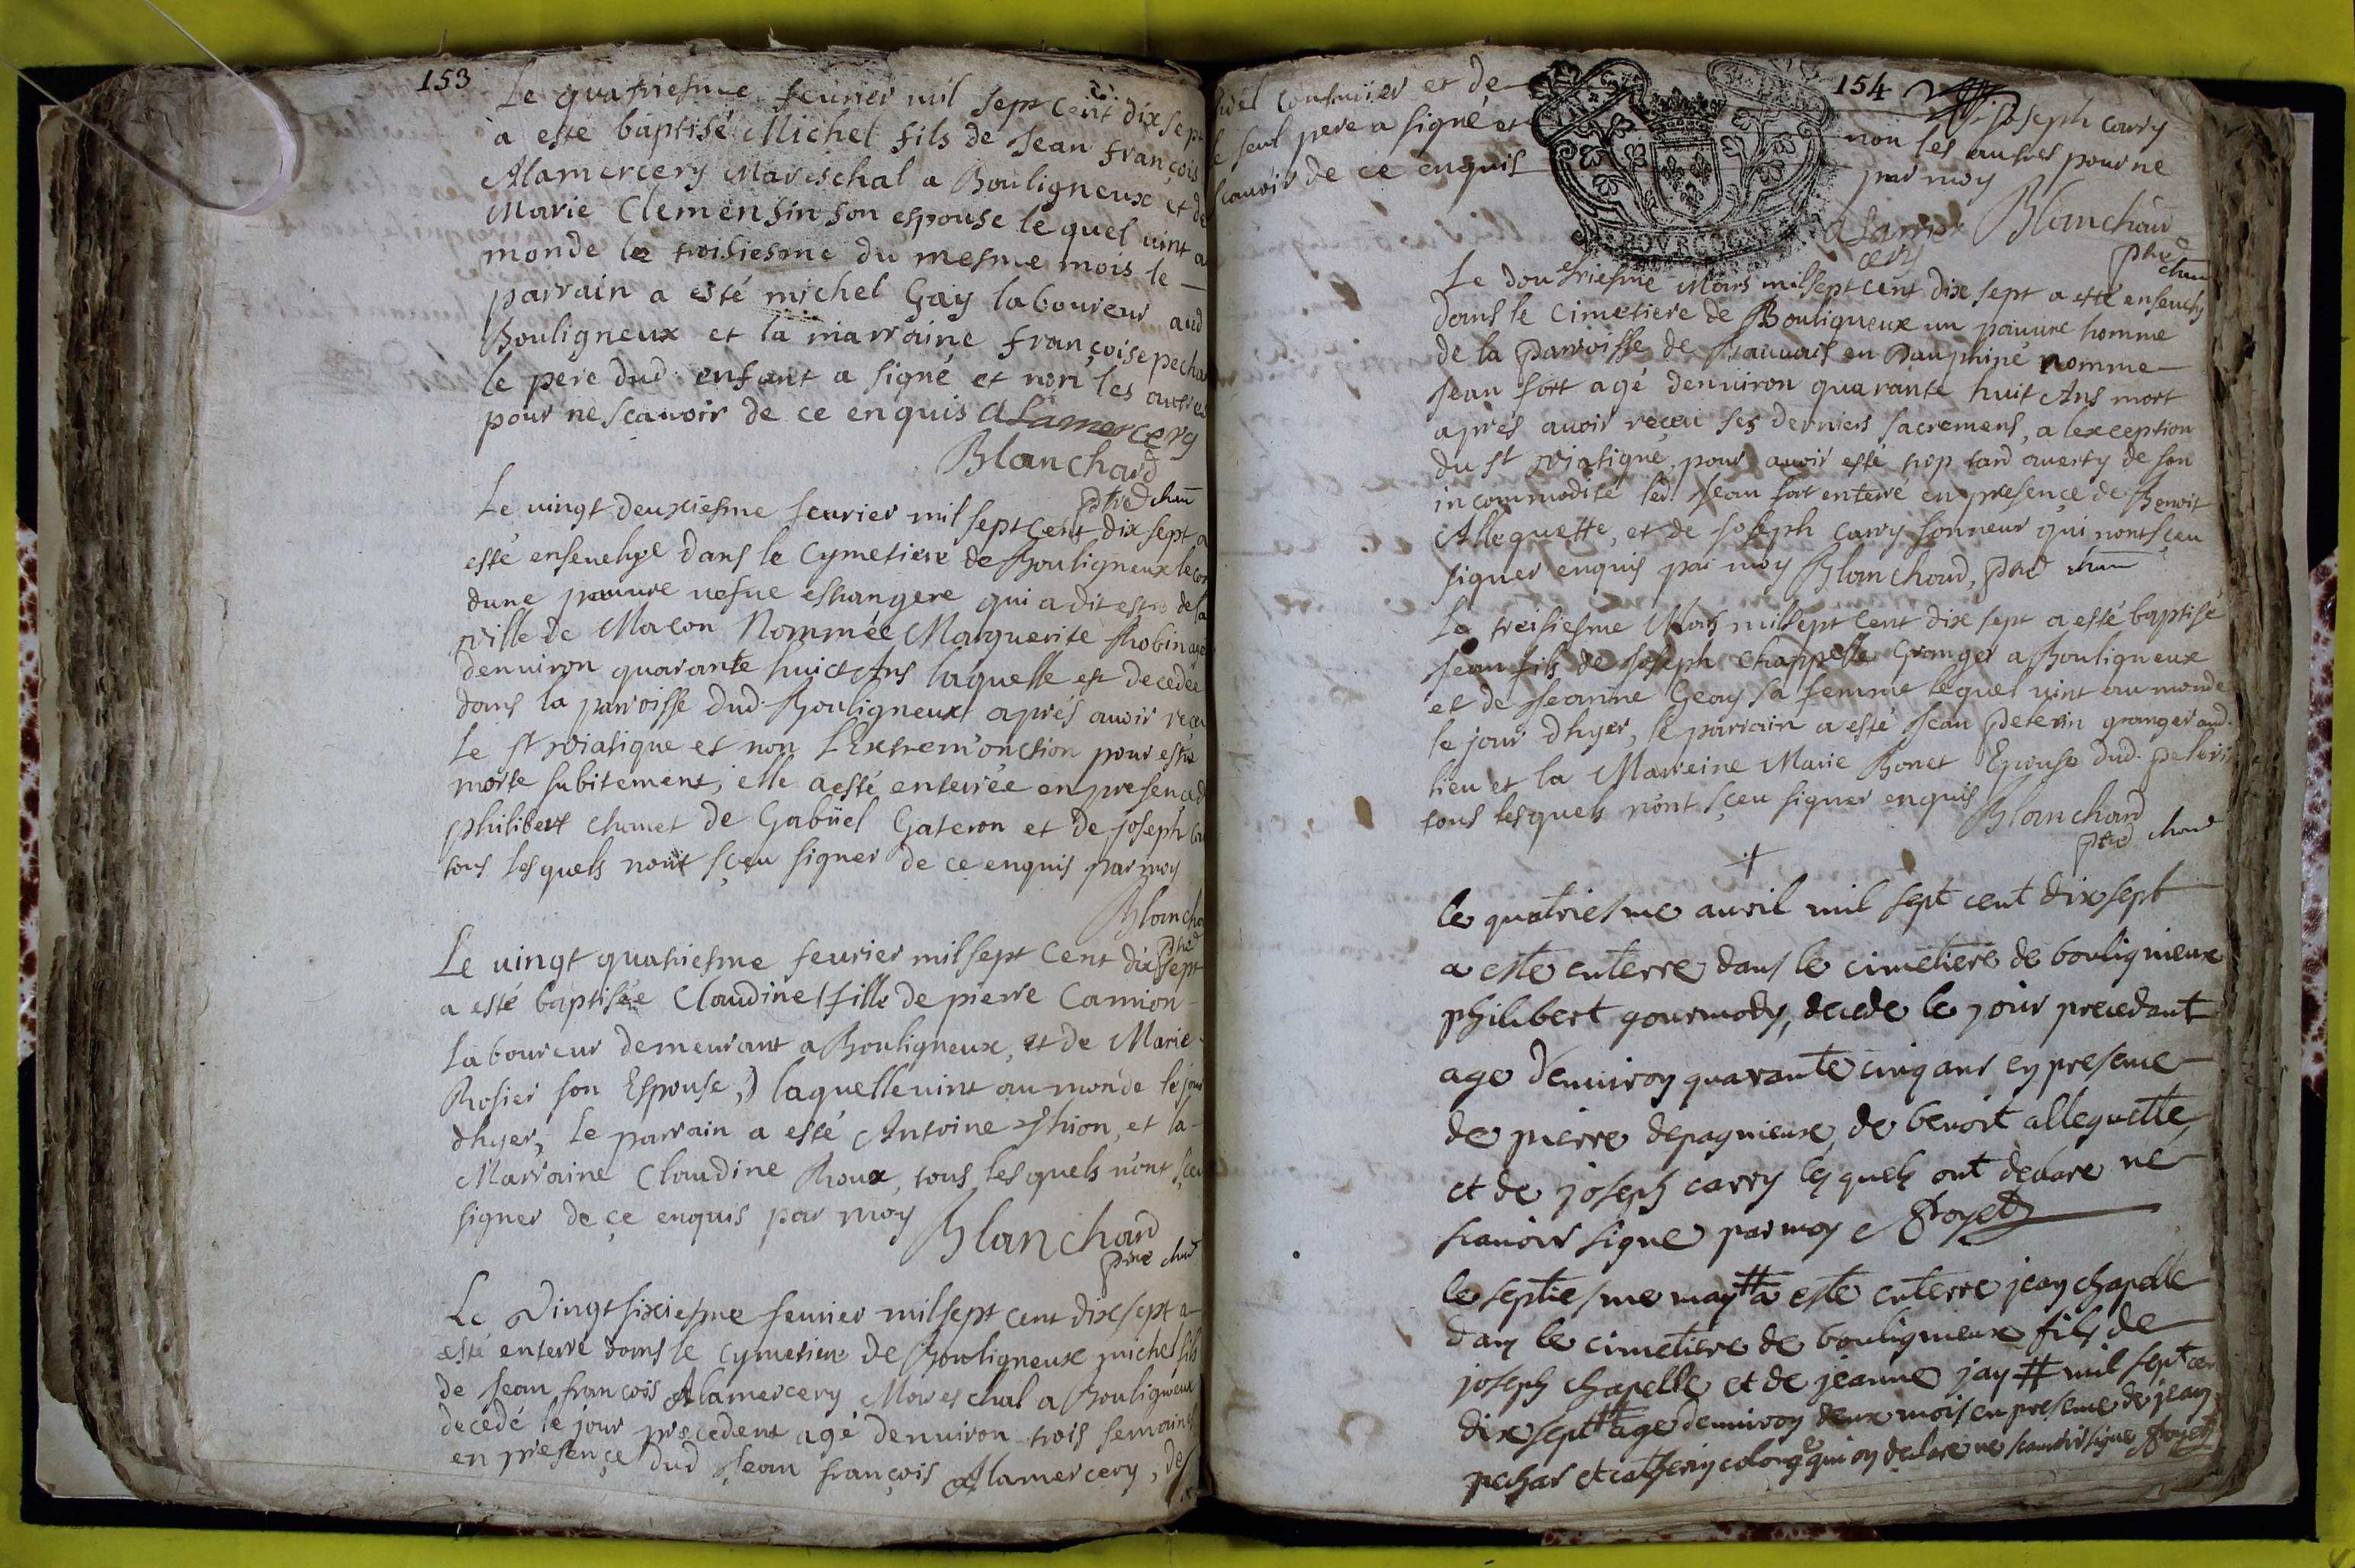 153
Le quatriesme feurier mil sept cent dix sept
a esté baptisé Michel fils de Jean françois
Alamercery Mareschal a Bouligneux et de
Marie Clemensin son espouse lequel uint a
monde le troisiesme du mesme mois le
parrain a esté michel Gay laboureur aud
Bouligneux et la marraine françoise pecha
le pere dud. enfant a signé et non les autres
pour ne scauoir de ce enquis Alamercery
Blanchard
ptre
Le uingt deuxiesme feurier mil sept cent dix sept a
esté enseuelye dans le Cymetiere de Bouligneux le cor
dune pauure uefue estrangere qui a dit estre de la
Ville de Macon Nommée Marguerite Robin agé
denuiron quarante huict Ans laquelle est decedée
dans la parroisse dud. Bouligneux aprés auoir receu
le st Viatique et non l'Extremonction pour estre
morte subitement, elle a esté enterrée en presence d
philibert chanet de Gabriel Gateron et de joseph
tous lesquels nont sçeu signer de ce enquis par moy
Blancha
ptre
Le uingt quatriesme feurier mil sept Cent dix sept
a esté baptisée Claudine fille de pierre Camion
Laboureur demeurant a Bouligneux, et de Marie
Rosier son Espouse, laquelle uint au monde le jour
dhyer, le parrain a esté Antoine Thion, et la
Marraine Claudine Roux, tous lesquels n'ont sceu
signer de çe enquis par moy Blanchard
ptre
Le Vingt sixiesme feurier mil sept cent dix sept a
esté enterré dans le Cymetiere de Bouligneux michel fils
de Jean françois Alamercery Mareschal a Bouligneux
decedé le jour precedent agé denuiron trois semaines
en presençe dud Jean françois Alamercery, de
154
et de Joseph carry
le seul pere a signé et non les autres pour ne
scauoir de ce enquis par moy
BOVRGOGNE
Alamer Blanchard
cery ptre
Le douziesme Mars mil sept cent dix sept a esté enseuely
dans le Cimetiere de Bouligneux un pauure homme
de la parroisse de en Dauphiné nomme
Jean fort agé denuiron quarante huit Ans mort
aprés auoir reçeu ses derniers sacremens, a lexception
du st Viatique, pour auoir esté trop tard auerty de son
incommodité led. Jean fort enterré en presençe de Benoit
Alleguette, et de Joseph Carry sonneur qui nont sçeu
signer enquis par moy Blanchard, ptre
Le treisiesme Mars mil sept Cent dix sept a esté baptisé
Jean fils de Joseph Chappelle Granger a Bouligneux
et de Jeanne Geay sa femme lequel uint au monde
le jour dhyer, le parrain a esté Jean Pelerin granger aud.
lieu et la Marreine Marie Bonet Epouse dud. pelerin
tous lesquels n'ont sçeu signer enquis Blanchard
ptre
le quatriesme auril mil sept cent dix sept
a este enterre dans le cimetiere de boulignieux
philibert gourmody, decede le jour precedant
age denuiron quarante cinq ans en presence
de pierre depagnieux, de benoit alleguette,
et de joseph carry lesquels ont declare ne
scauoir signe par moy Froyet
le septiesme may # a este enterre jean chapelle
dans le cimetiere de bouligneux fils de
joseph chapelle et de jeanne jay # mil sept cen
dix sept # age denuiron deux mois en presence de jean
pechar et catherin colonge qui on declare ne scauoir signe Froyet